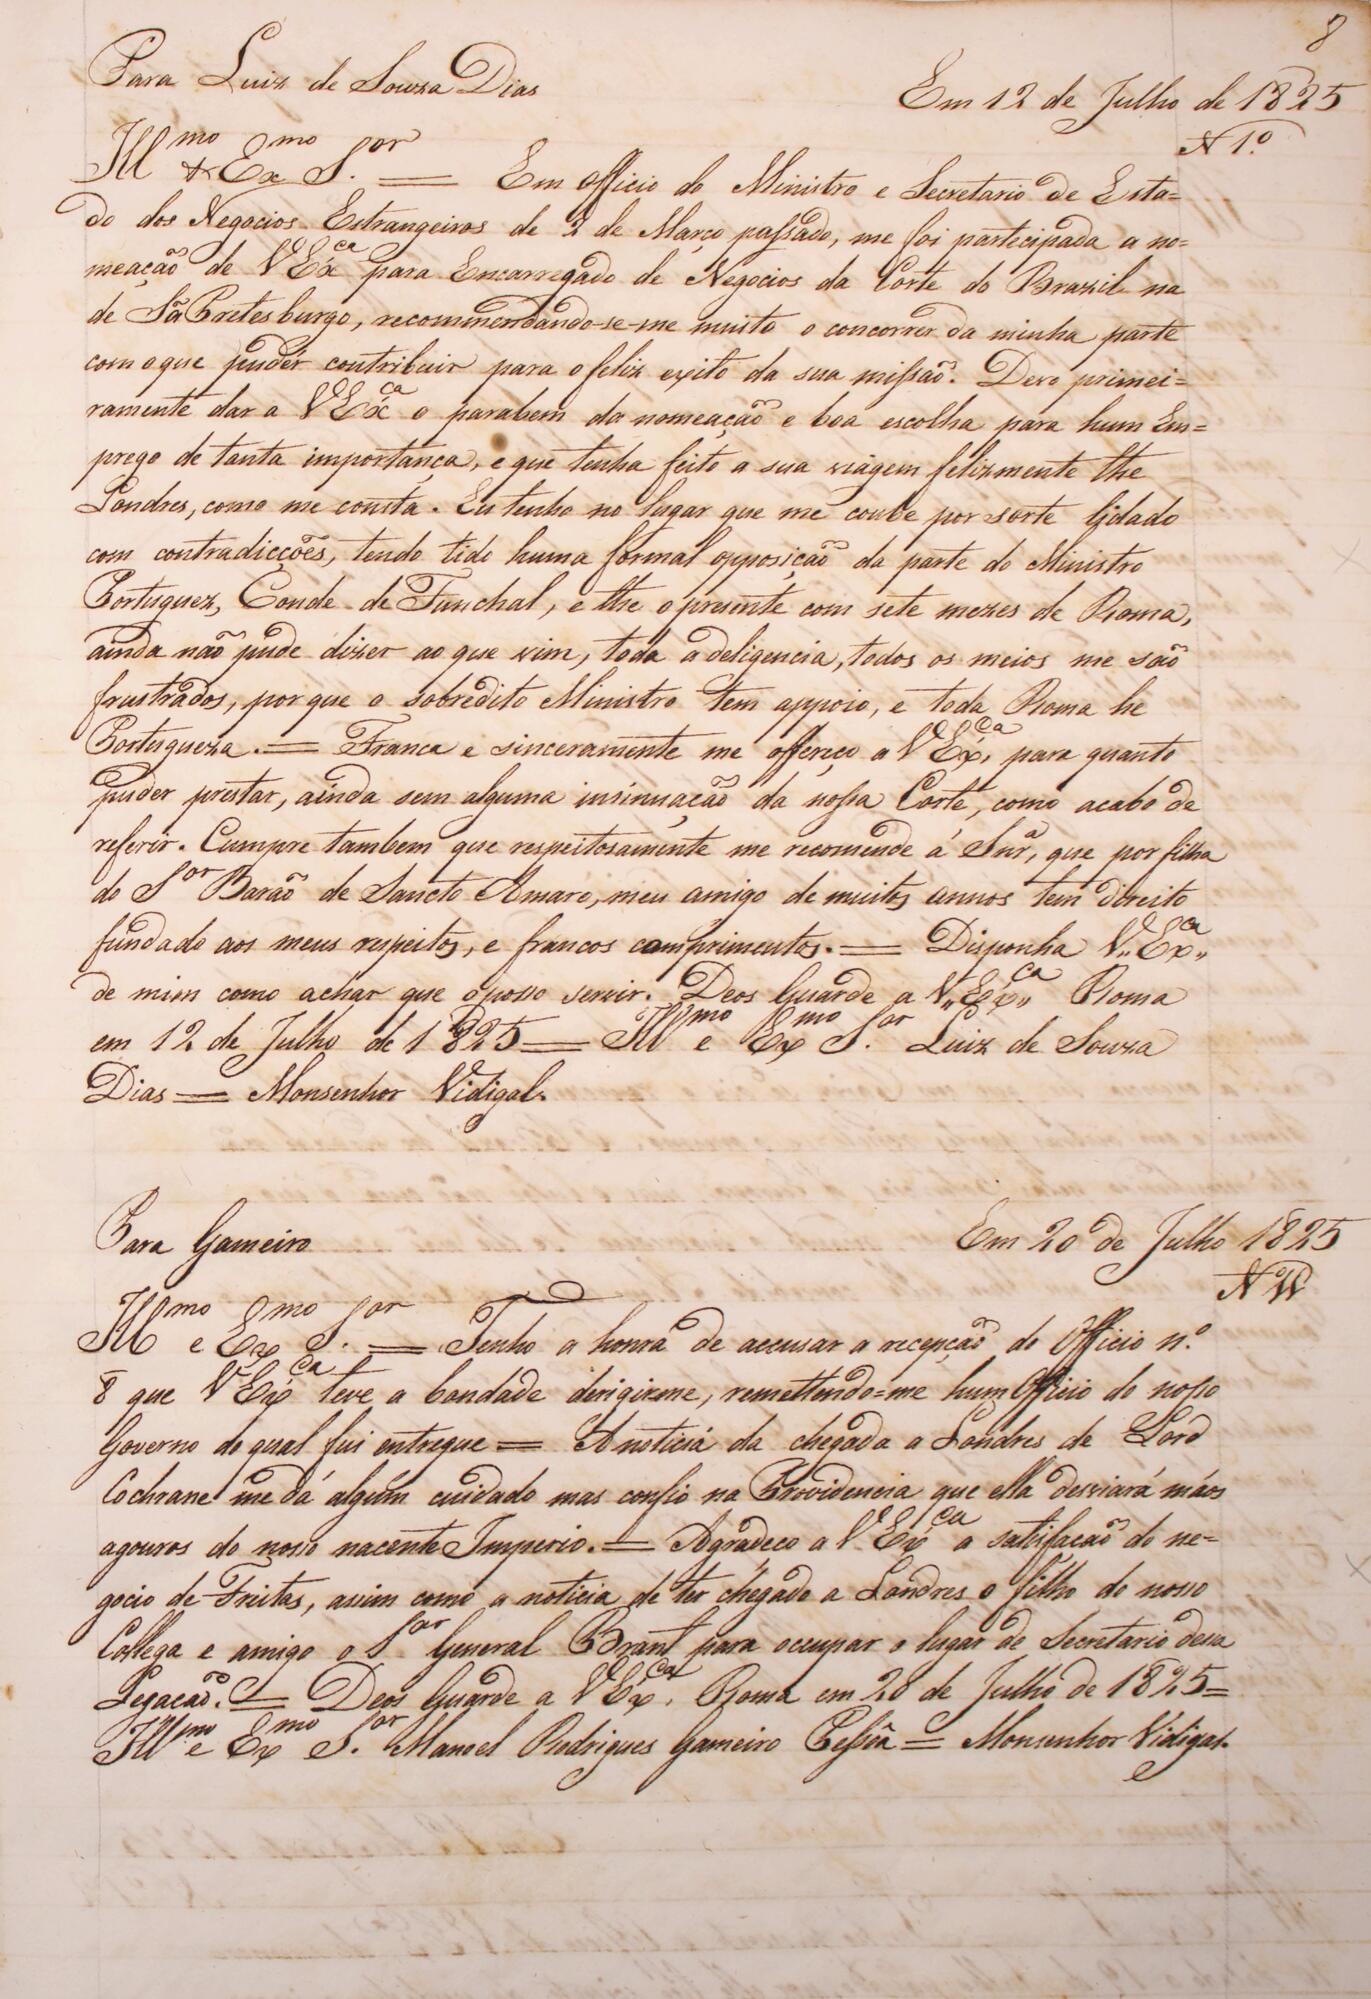 8
Para Luiz de Souza Dias
Em 12 de Julho de 1825
N 1.º
Ill.mo & Ex.mo S.or = Em officio do Ministro e Secretario de Esta=
do dos Negocios Estrangeiros de 2 de Março passado, me foi partecipada a no=
meação de V Ex.ca para Encarregado de Negocios da Corte do Brazil na
de Sã Pretesburgo, recommendando-se-me muito o concorrer da minha parte
com o que puder contribuir para o feliz exito da sua missão. Devo primei=
ramente dar a V Ex.ca o parabem da nomeação e boa escolha para hum Em=
prego de tanta importança, e que tenha feito a sua viagem felizmente the
Londres, como me consta. Eu tenho no lugar que me coube por sorte lidado
com contradicções, tendo tido huma formal opposição da parte do Ministro
Portuguez, Conde de Funchal, e the o presente com sete mezes de Roma,
ainda não pude dizer ao que vim, toda a deligencia, todos os meios me são
frustrados, por que o sobredito Ministro tem appoio, e toda Roma he
Portugueza. = Franca e sinceramente me offereço a V Ex.ca, para quanto
puder prestar, ainda sem alguma insinuação da nossa Corte, como acabo de
referir. Cumpre tambem que respeitosamente me recomende á Snr̃, que por filha
do S.or Barão de Sancto Amaro, meu amigo de muitos annos tem direito
fundado aos meus respeitos, e francos comprimentos. = Disponha V,, Ex.ca,,
de mim como achar que o posso servir. Deos Guarde a V,, Ex.ca,, Roma
em 12 de Julho de 1825 = Ill.mo e Ex.mo S.or Luiz de Souza
Dias = Monsenhor Vidigal.
Para Gameiro
Em 20 de Julho 1825
N.º
Ill.mo e Ex.mo S.or = Tenho a honra de accusar a recepção do Officio n.º
8 que V Ex.ca teve a bondade dirigirme, remettendo=me hum Officio do nosso
Governo do qual fui entregue = A noticia da chegada a Londres de Lord
Cochrane me dá algum cuidado mas confio na Providencia que ella desviará máos
agouros do nosso nacente Imperio. = Agradeço a V Ex.ca a satisfacão do ne=
gocio de Freitas, assim como a noticia de ter chegado a Londres o filho do nosso
Collega e amigo o S.or General Brant para occupar o lugar de Secretario dessa
Legacão. = Deos Guarde a V Ex.ca. Roma em 20 de Julho de 1825 =
Ill.mo e Ex.mo S.or Manoel Rodrigues Gameiro Pessôa = Monsenhor Vidigal.